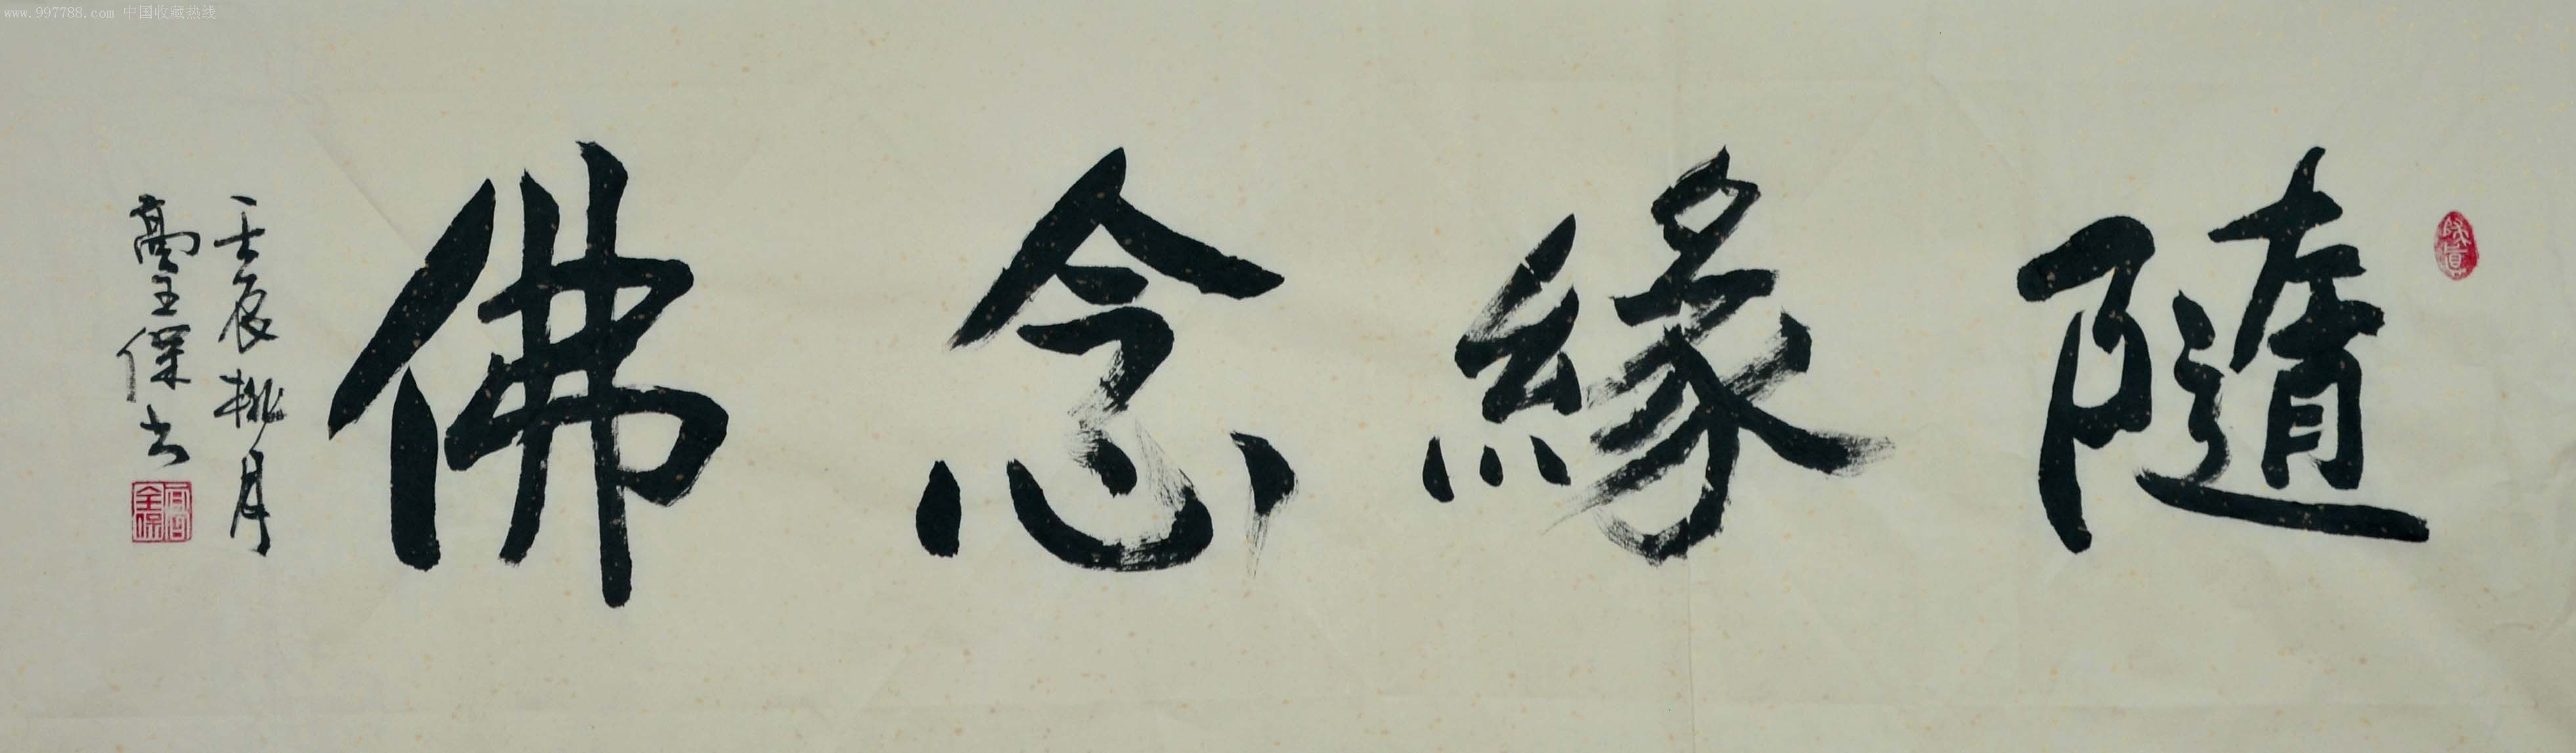 www.997788.com 中国收藏热线
隨緣念佛
壬辰桃月
高全傑书